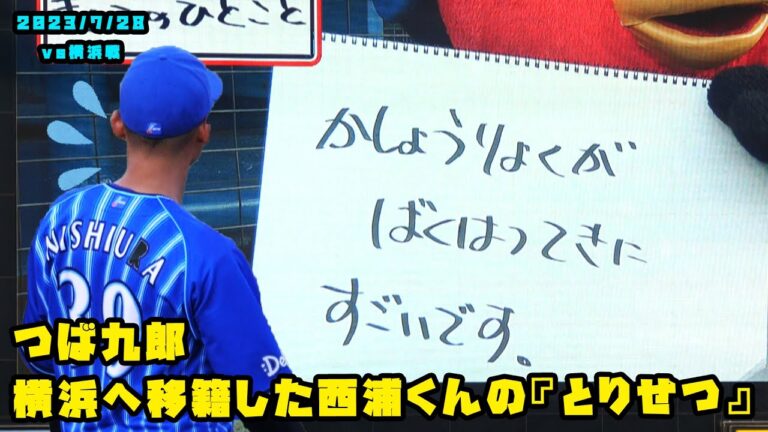 2023/7/28
vs横浜戦
きょうのひとこと
かしょうりょくが
ばくはつてきに
すごいです。
NISHIURA
39
つば九郎
横浜へ移籍した西浦くんの『とりせつ』